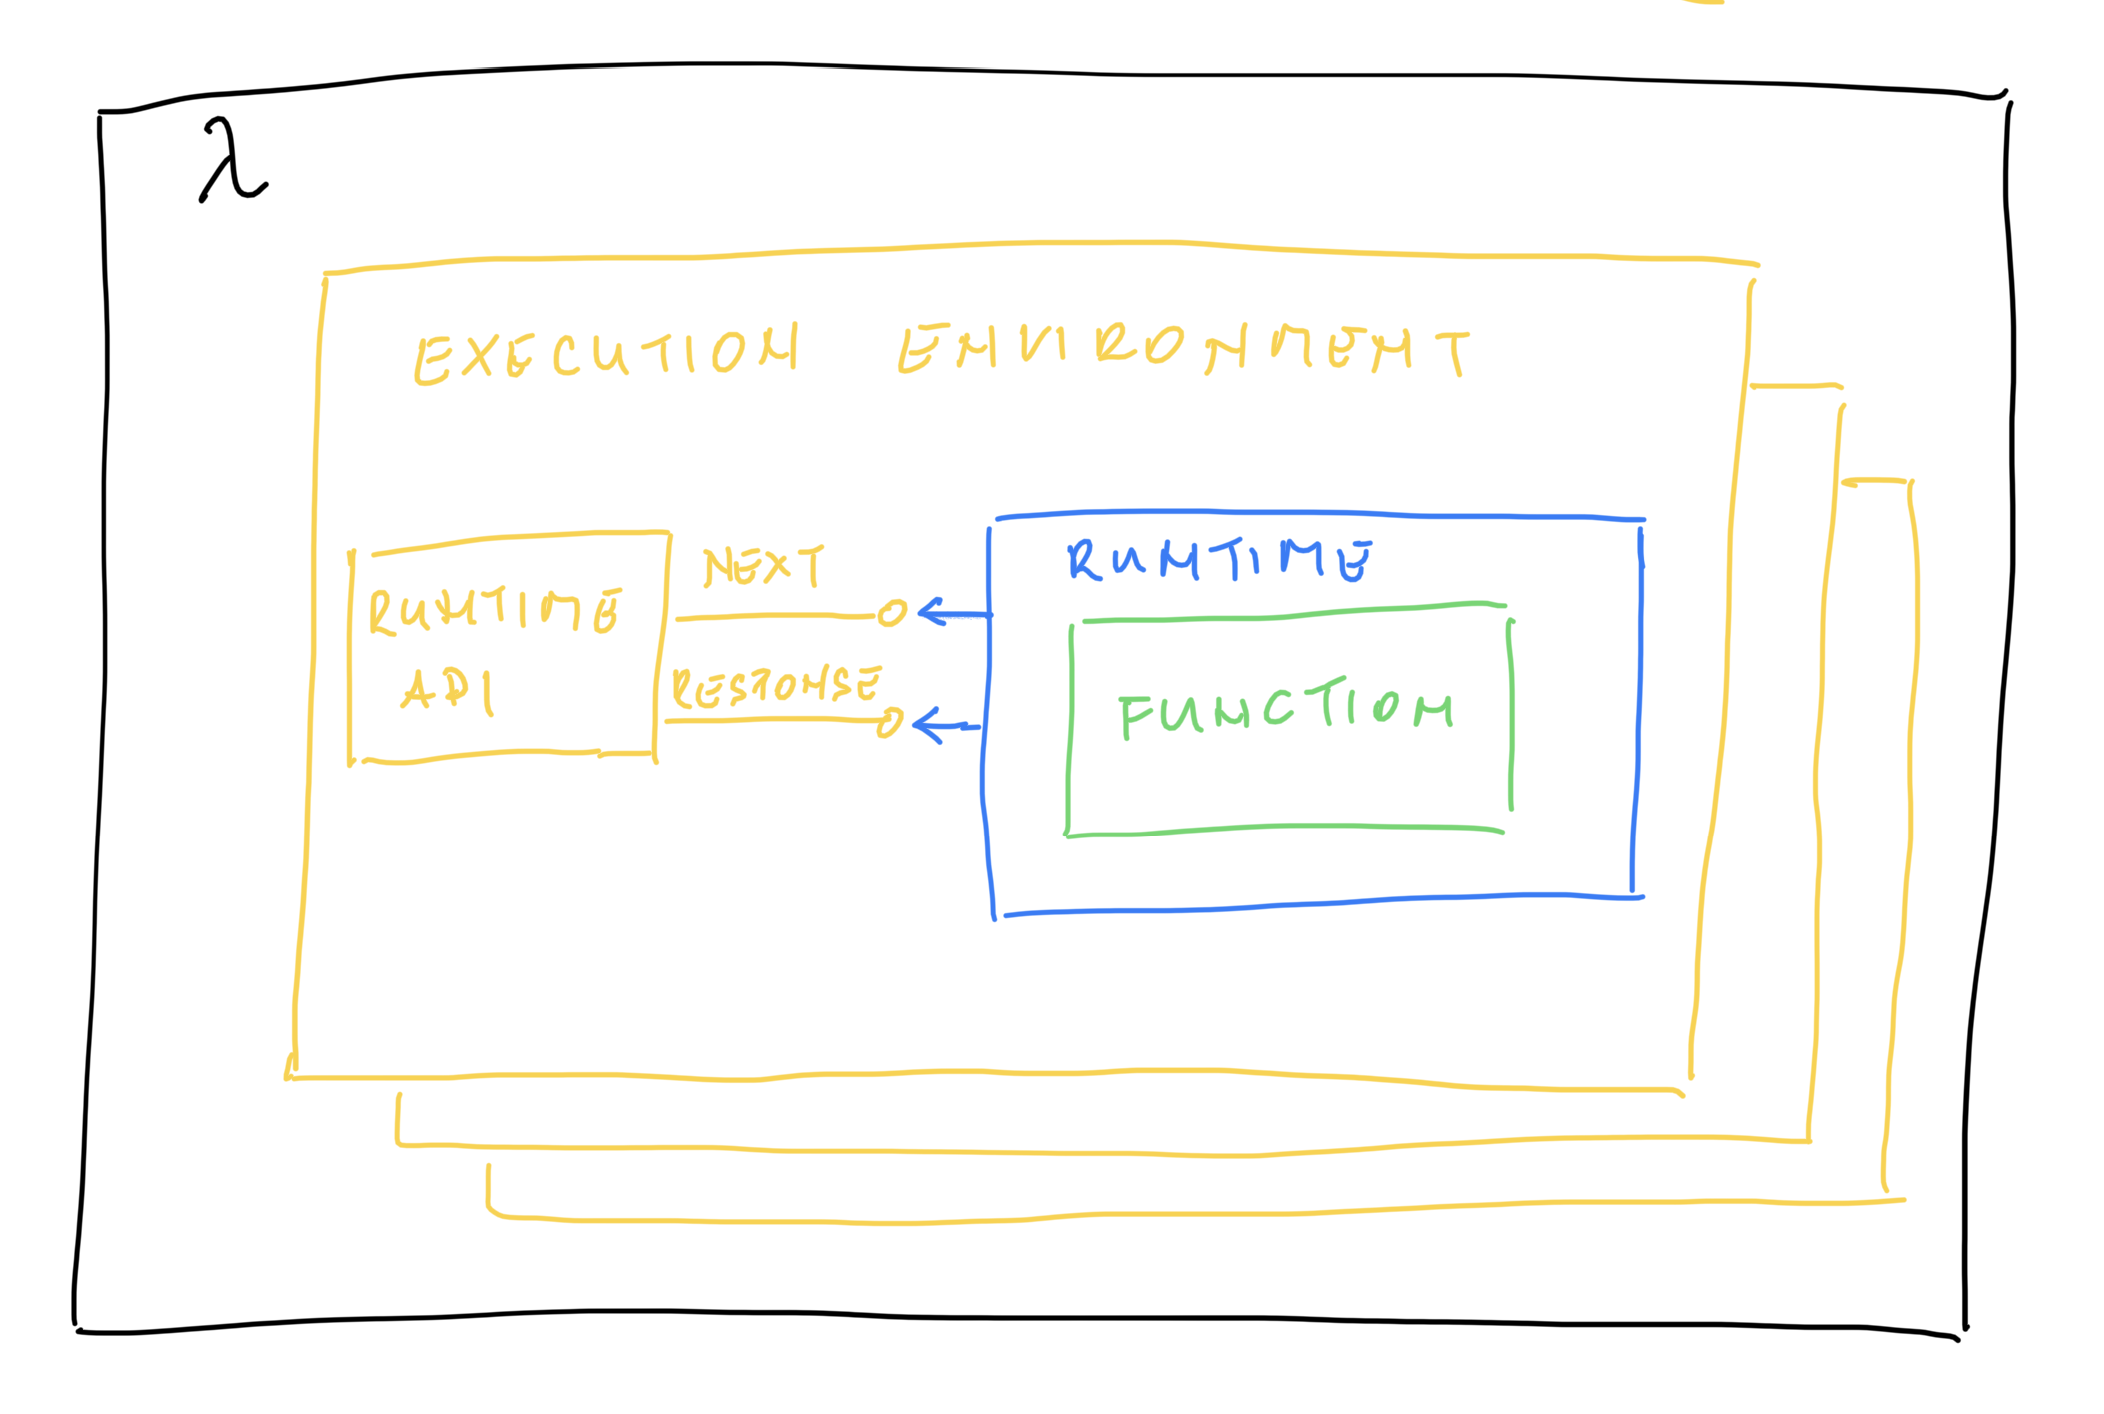 λ
EXECUTION ENVIRONMENT
NEXT
RUNTIME
API
RESPONSE
RUNTIME
FUNCTION